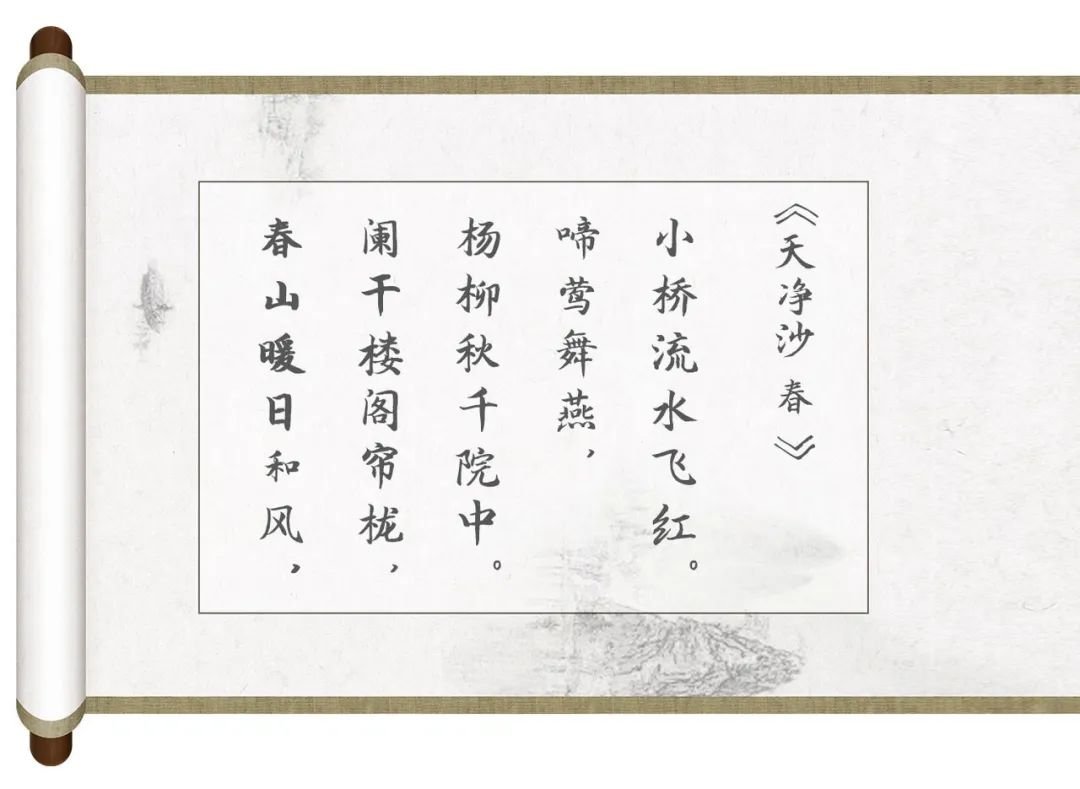 《天净沙 春》
春山暖日和风，
阑干楼阁帘栊，
杨柳秋千院中。
啼莺舞燕，
小桥流水飞红。